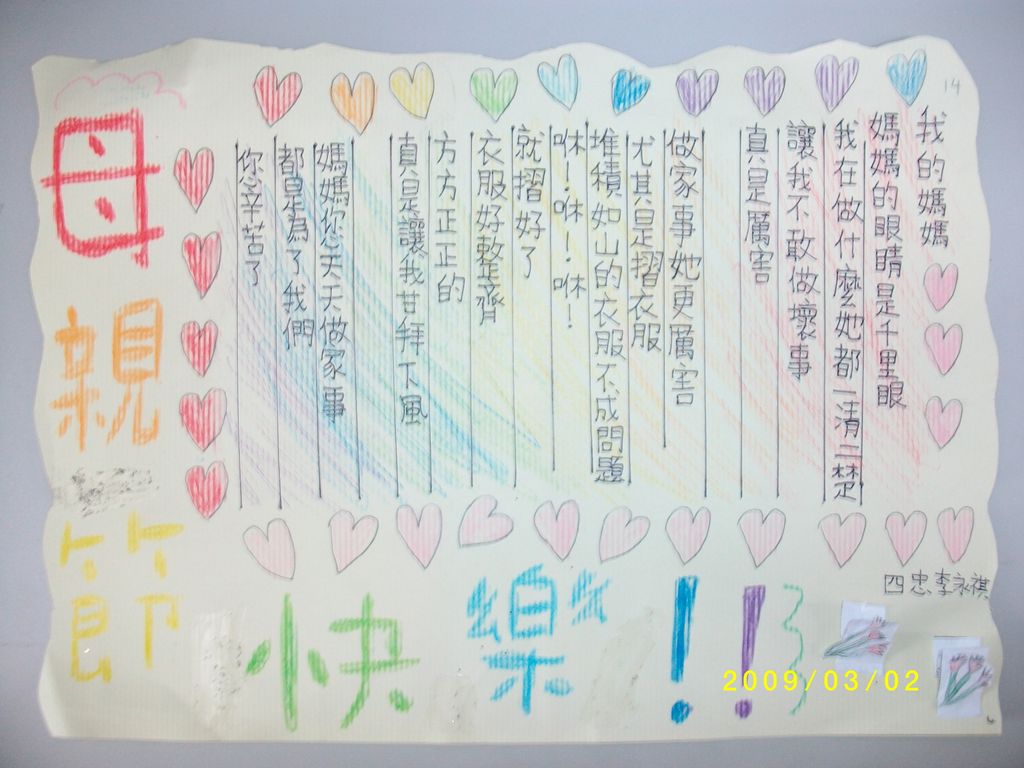 我的媽媽
媽媽的眼睛是千里眼
我在做什麼她都一清二楚
讓我不敢做壞事
真是厲害
做家事她更厲害
尤其是摺衣服
堆積如山的衣服不成問題
咻！咻！咻！
就摺好了
衣服好整齊
方方正正的
真是讓我甘拜下風
媽媽您天天做家事
都是為了我們
你辛苦了
母親節
快樂！！
四忠李永祺
14
2009/03/02